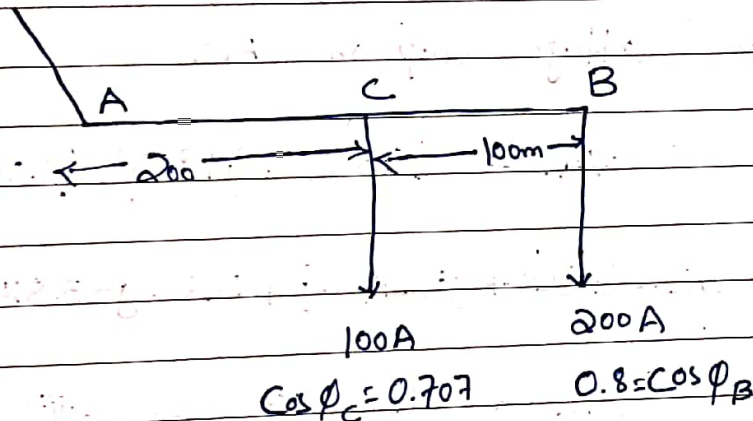 A C B
200 100m
100A 200A
Cos φ_C = 0.707 0.8 = Cos φ_B